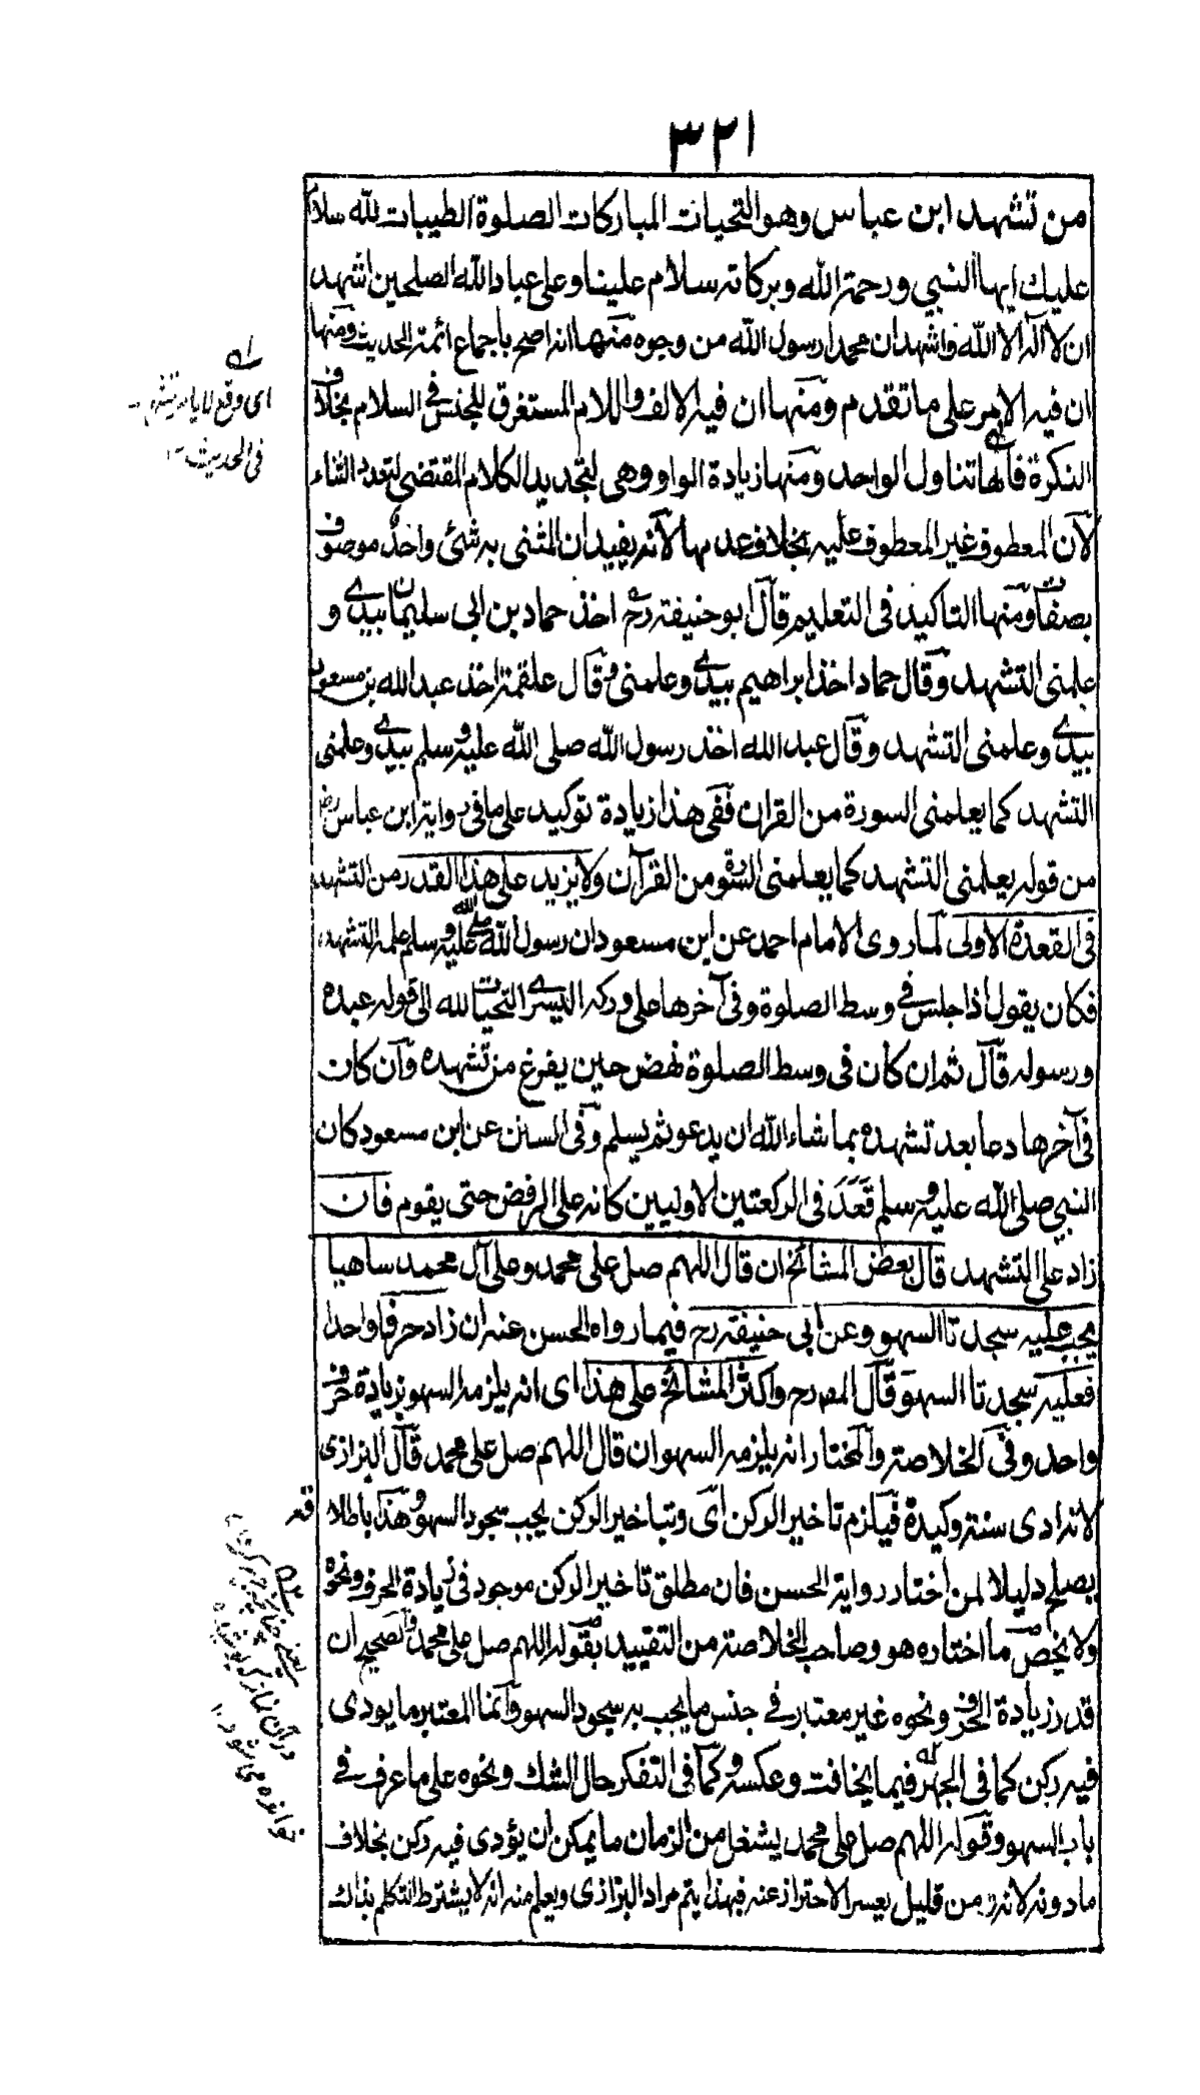 ٣٢١
من تشهد ابن عباس وهو التحيات المباركات الصلوة الطيبات لله سلام
عليك ايها النبي ورحمة الله وبركاته سلام علينا وعلى عباد الله الصلحين اشهد
ان لا اله الا الله واشهد ان محمدا رسول الله من وجوه منها انه اصح باجماع ائمة الحديث ومنها
ان فيه الامر على ما تقدم ومنها ان فيه الالف واللام المستغرق للجنس في السلام بخلاف
النكرة فانها تناول الواحد ومنها زيادة الواو وهي لتجديد الكلام المقتضى لتعدد الثناء
لان المعطوف غير المعطوف عليه بخلاف عدمها لانه يفيد ان المثنى به شئ واحد موصوف
بصفات ومنها التاكيد في التعليم قال ابو حنيفة رح اخذ حماد بن ابى سليمان بيدى و
علمنى التشهد وقال حماد اخذ ابراهيم بيدى وعلمنى وقال علقمة اخذ عبد الله بن مسعود
بيدى وعلمنى التشهد وقال عبد الله اخذ رسول الله صلى الله عليه وسلم بيدى وعلمنى
التشهد كما يعلمنى السورة من القران ففى هذا زيادة توكيد على ما فى رواية ابن عباس رض
من قوله يعلمنى التشهد كما يعلمنى السورة من القرآن ولا يزيد على هذا القدر من التشهد
فى القعدة الاولى لما روى الامام احمد عن ابن مسعود ان رسول الله صلى الله عليه وسلم علمه التشهد
فكان يقول اذا جلس في وسط الصلوة وفى آخرها على وركه اليسرى التحيات لله الى قوله عبده
ورسوله قال ثم ان كان فى وسط الصلوة نهض حين يفرغ من تشهده وان كان
فى آخرها دعا بعد تشهده بما شاء الله ان يدعو ثم يسلم وفى السنن عن ابن مسعود كان
النبي صلى الله عليه وسلم قعد فى الركعتين الاوليين كانه على الرضف حتى يقوم فان
زاد على التشهد قال بعض المشائخ ان قال اللهم صل على محمد وعلى آل محمد ساهيا
يجب عليه سجدتا السهو وعن ابى حنيفة رح فيما رواه الحسن عنه ان زاد حرفا واحدا
فعليه سجدتا السهو قال المصرح واكثر المشائخ على هذا اى انه يلزمه السهو بزيادة حرف
واحد وفى الخلاصة والمختار انه يلزمه السهو ان قال اللهم صل على محمد قال البزازى
لانه ادى سنة وكيدة فيلزم تاخير الركن اى وبتاخير الركن يجب سجود السهو وهذا باطلاقه
يصلح دليلا لمن اختار رواية الحسن فان مطلق تاخير الركن موجود فى زيادة الحرف ونحوه
ولا يخص ما اختاره هو وصاحب الخلاصة من التقييد بقوله اللهم صل على محمد والصحيح ان
قدر زيادة الحرف ونحوه غير معتبر في جنس ما يجب به سجود السهو وانما المعتبر ما يودى
فيه ركن كما فى الجهر فيما يخافت وعكسه وكما فى التفكر حال الشك ونحوه على ما عرف في
باب السهو وقوله اللهم صل على محمد يشغل من الزمان ما يمكن ان يؤدى فيه ركن بخلاف
ما دونه لانه زمن قليل يعسر الاحتراز عنه فبهذا يتم مراد البزازى ويعلم منه انه لا يشترط التكلم بذلك
اى وقع
فى الحديث ١٢
يعنى
در آن نماز